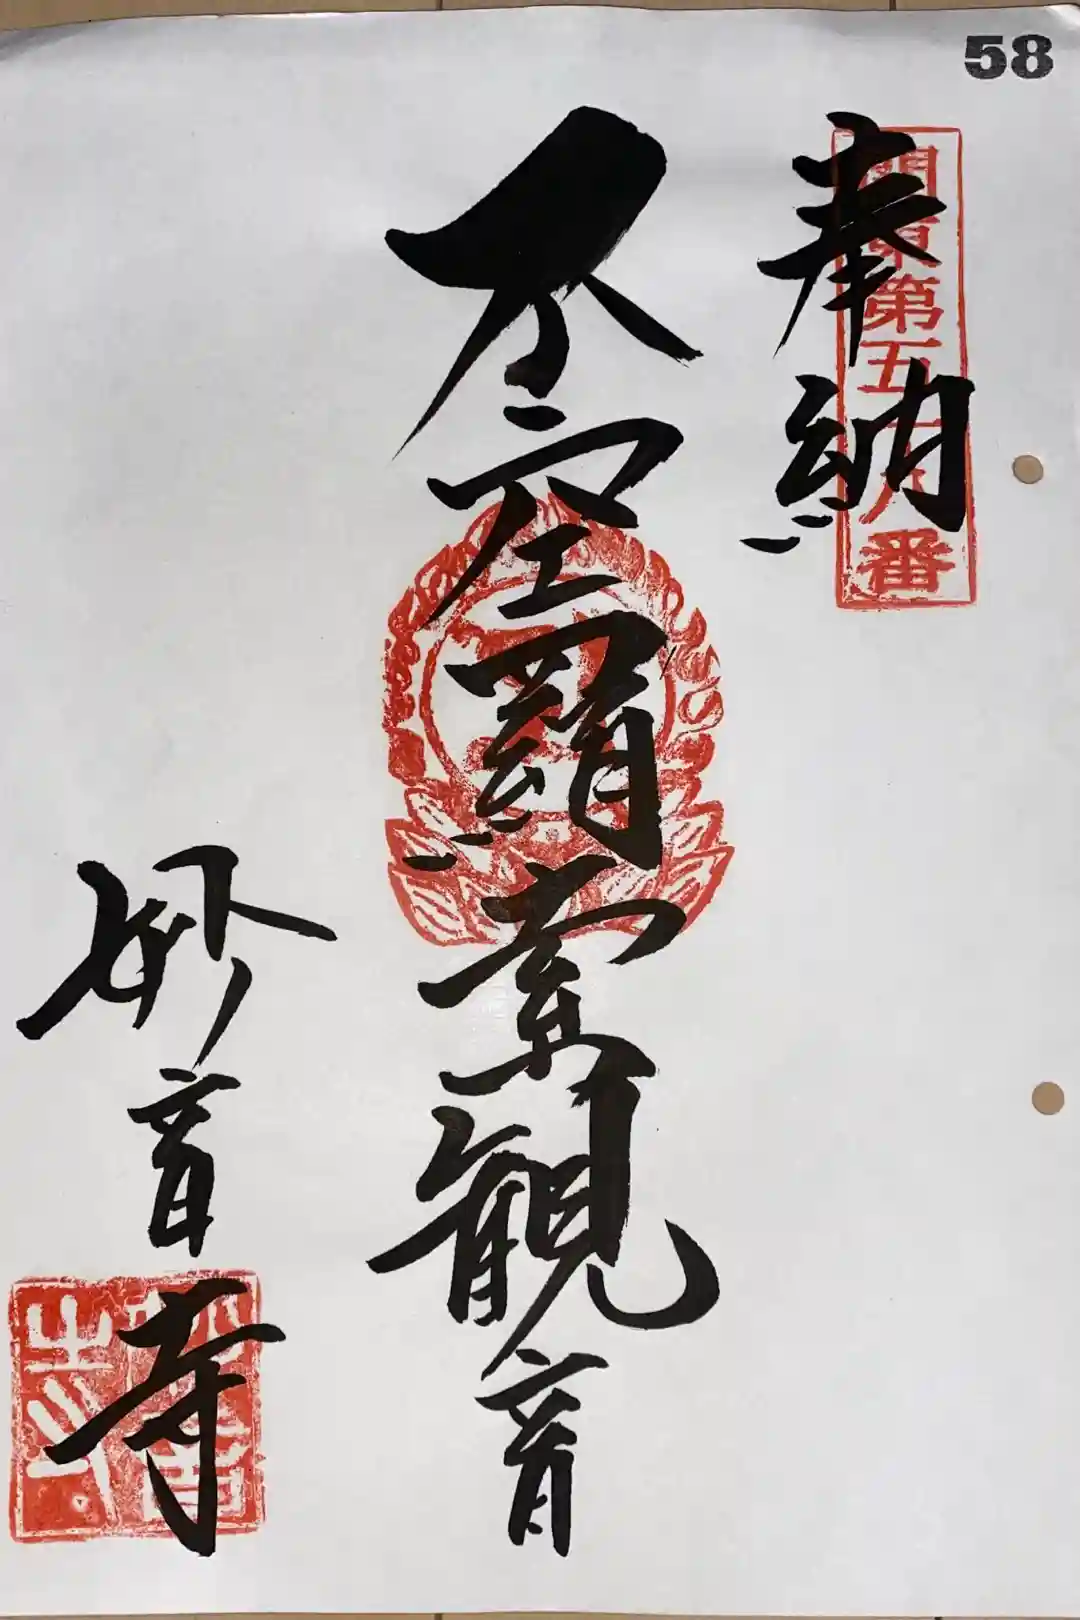 58
奉納
関東第五十八番
不空羂索観音
妙音寺